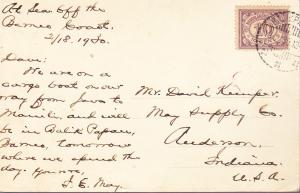 At Sea off the
Borneo Coast.
2/18.1930.
Dave:
We are on a
cargo boat on our
way from Java to
Manila, and will
be in Balik Papan,
Borneo, tomorrow
where we spend the
day. Yours,
F. E. May.
Mr. David Kemper
May Supply Co.
Anderson,
Indiana.
U.S.A.